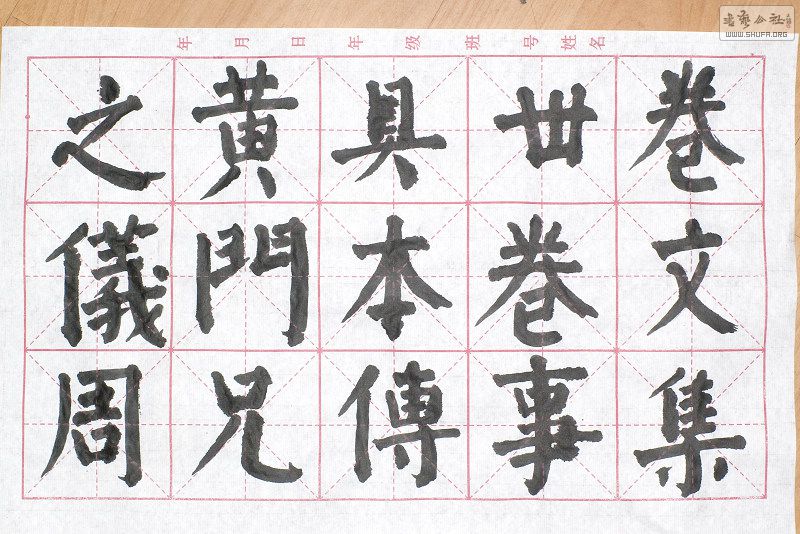 书艺公社
WWW.SHUFA.ORG
年 月 日 年 级 班 号 姓名
卷文集
丗卷事
具本傳
黄門兄
之儀周